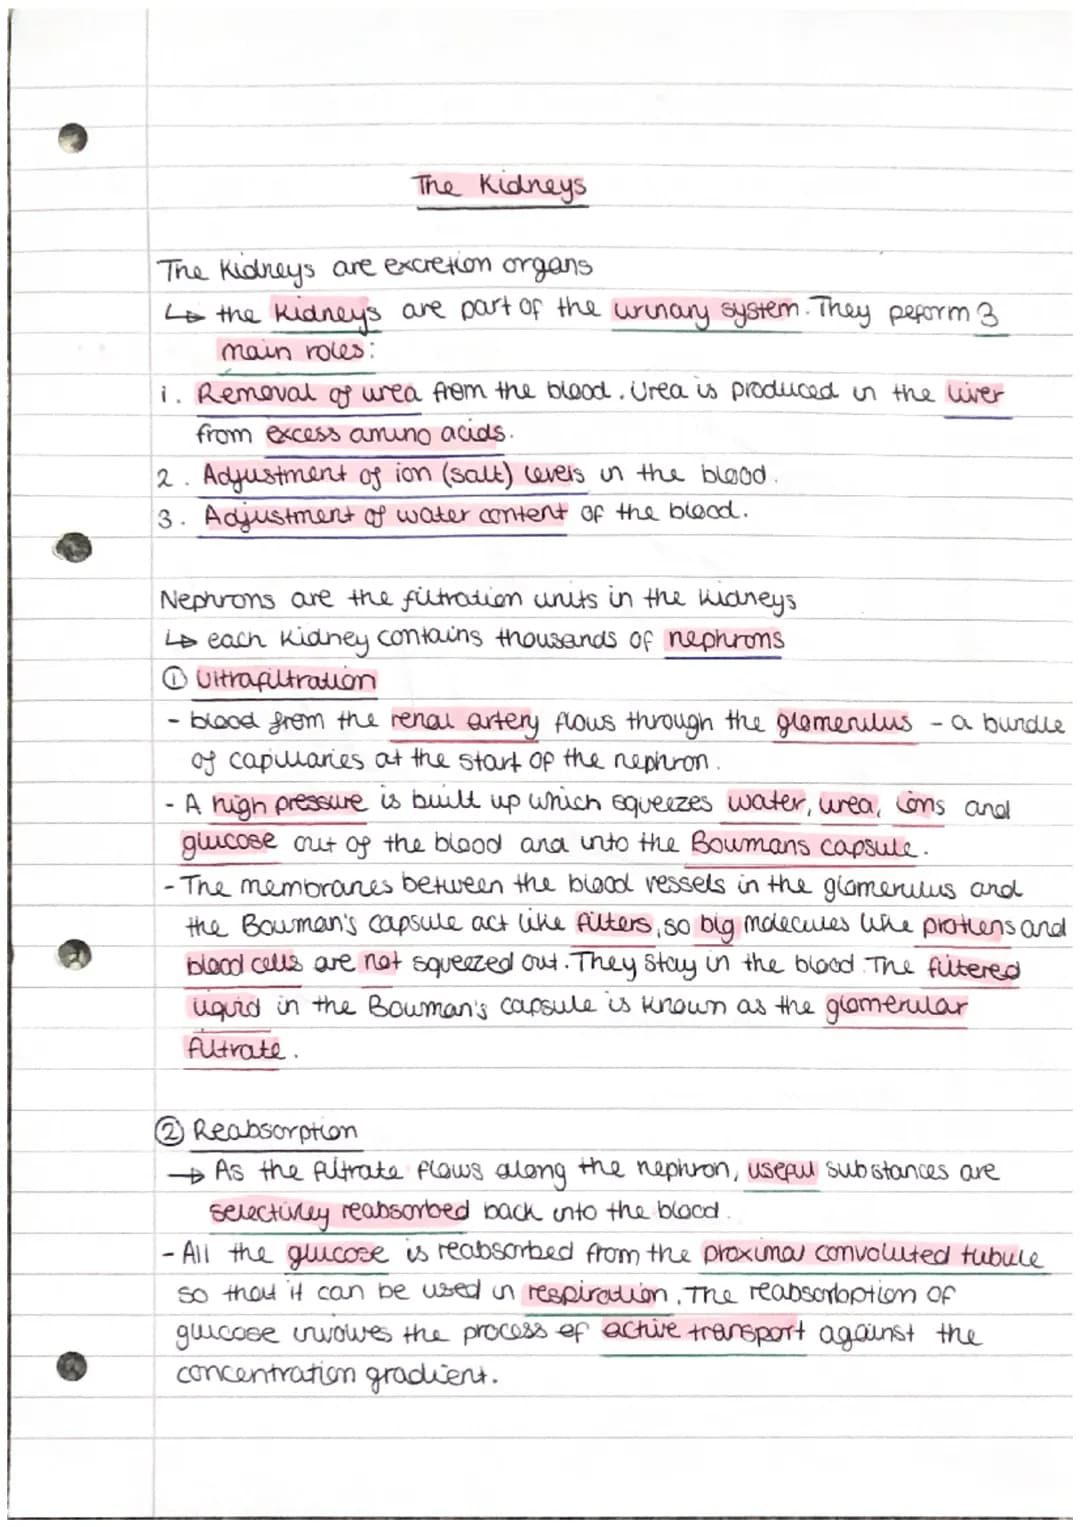 The Kidneys
The Kidneys are excretion organs
↳ the kidneys are part of the urinary system. They peform 3
main roles:
1. Removal of urea from the blood. Urea is produced in the liver
from excess amino acids.
2. Adjustment of ion (salt) levels in the blood.
3. Adjustment of water content of the blood.
Nephrons are the filtration units in the kidneys
↳ each kidney contains thousands of nephrons
① Ultrafiltration
- blood from the renal artery flows through the glomerulus - a bundle
of capillaries at the start of the nephron.
- A high pressure is built up which squeezes water, urea, ions and
glucose out of the blood and into the Bowmans capsule.
- The membranes between the blood vessels in the glomerulus and
the Bowman's capsule act like filters, so big molecules like protiens and
blood cells are not squeezed out. They stay in the blood. The filtered
liquid in the Bowman's capsule is known as the glomerular
filtrate.
② Reabsorption
→ As the filtrate flows along the nephron, useful substances are
selectivley reabsorbed back into the blood.
- All the glucose is reabsorbed from the proximal convoluted tubule
so that it can be used in respiration. The reabsorbption of
glucose involves the process of active transport against the
concentration gradient.